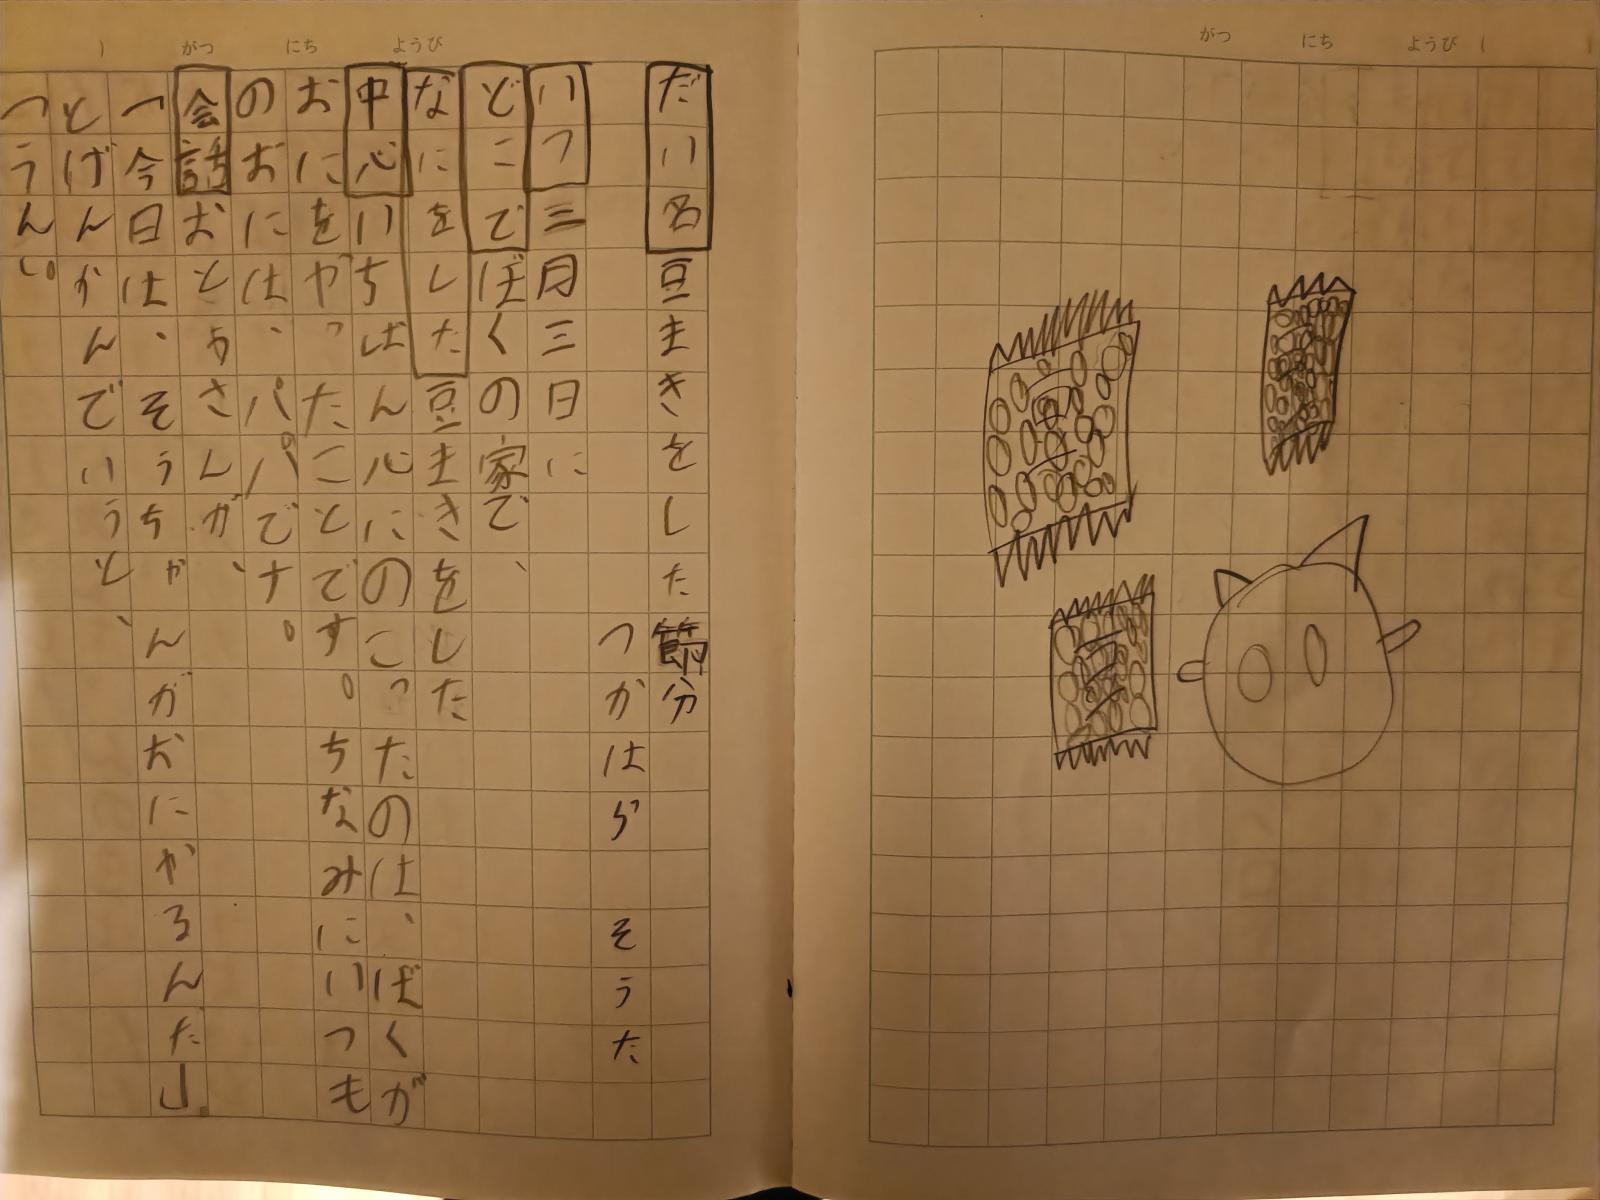 がつ にち ようび (
) がつ にち ようび
だい名豆まきをした節分
つかはら　そうた
いつ三月三日に
どこでぼくの家で、
なにをした豆まきをした
中心いちばん心にのこったのは、ぼくが
おにをやったことです。ちなみにいつも
のおには、パパです。
会話おとおさんが、
「今日は、そうちゃんがおにやるんだ」
とげんかんでいうと、
「うん」。